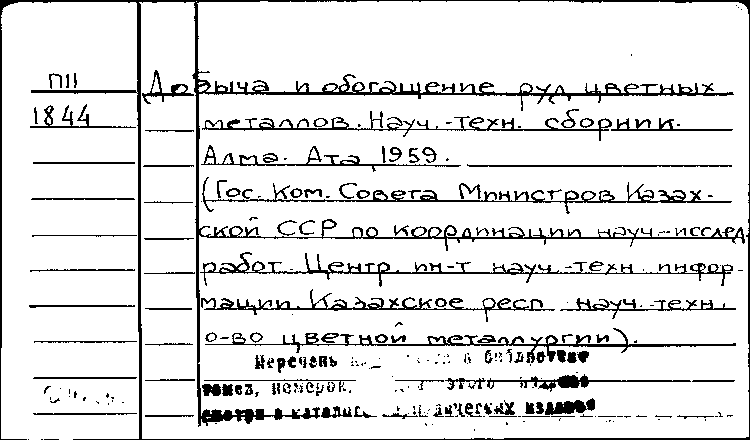 ПII
1844
Добыча и обогащение руд цветных
металлов. Науч.-техн. сборник.
Алма-Ата, 1959.
(Гос. Ком. Совета Министров Казах-
ской ССР по координации науч-исслед.
работ. Центр. ин-т науч.-техн. инфор-
мации. Казахское респ. науч. техн.
о-во цветной металлургии).
Перечень в библиотеке
томов, номеров, этого издания
смотри в каталоге изданий